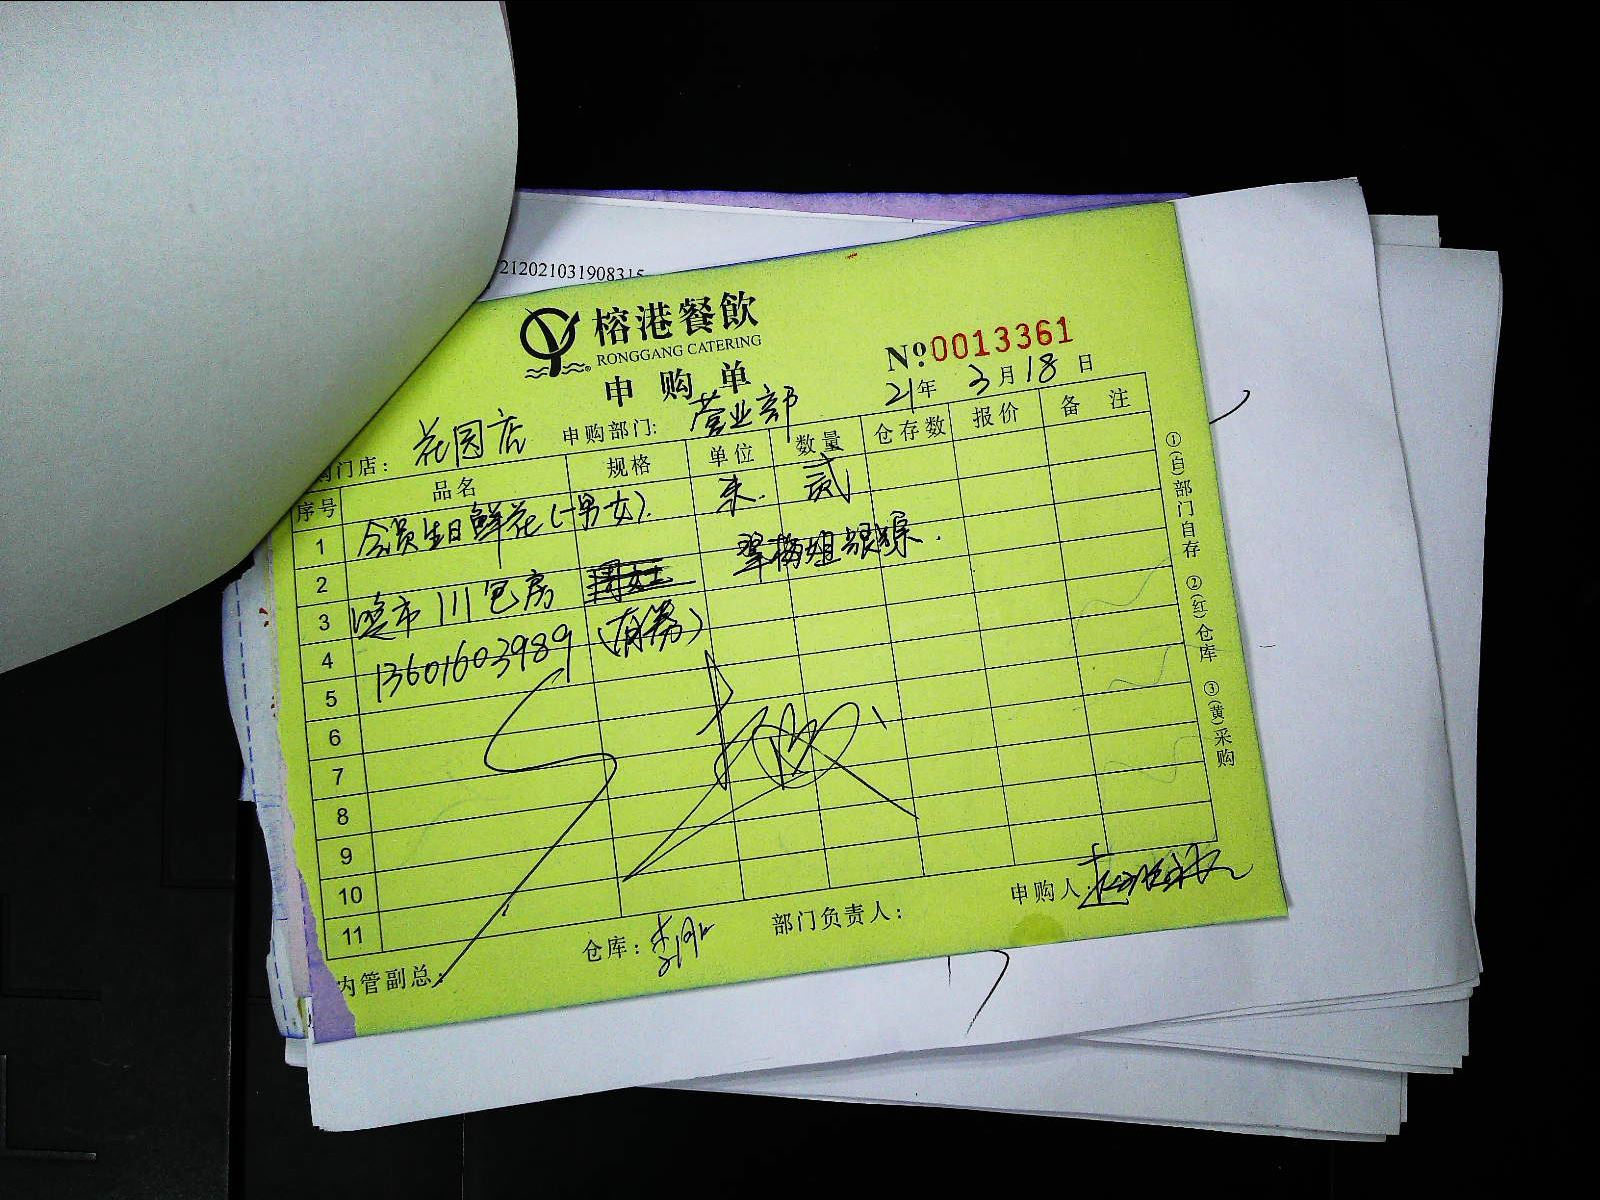 212021031908315
榕港餐飲
RONGGANG CATERING
申购单
№0013361
21年 3月18日
门店: 花园店 申购部门: 营业部
序号 品名 规格 单位 数量 仓存数 报价 备注
1 会员生日鲜花(一男女). 束. 贰
2
3 晚市111包房 翠梅姐跟踪.
4 13601603989 (有券)
5
6
7
8
9
10
11
内管副总: 仓库: 部门负责人: 申购人:
①(白)部门自存 ②(红)仓库 ③(黄)采购